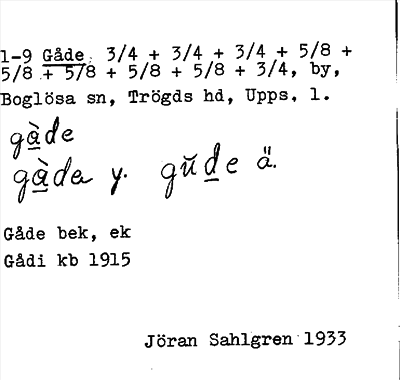 1-9 Gåde 3/4 + 3/4 + 3/4 + 5/8 +
5/8 + 5/8 + 5/8 + 5/8 + 3/4, by,
Boglösa sn, Trögds hd, Upps. l.
gàde
gàda y. gŭde ä.
Gåde bek, ek
Gådi kb 1915
Jöran Sahlgren 1933